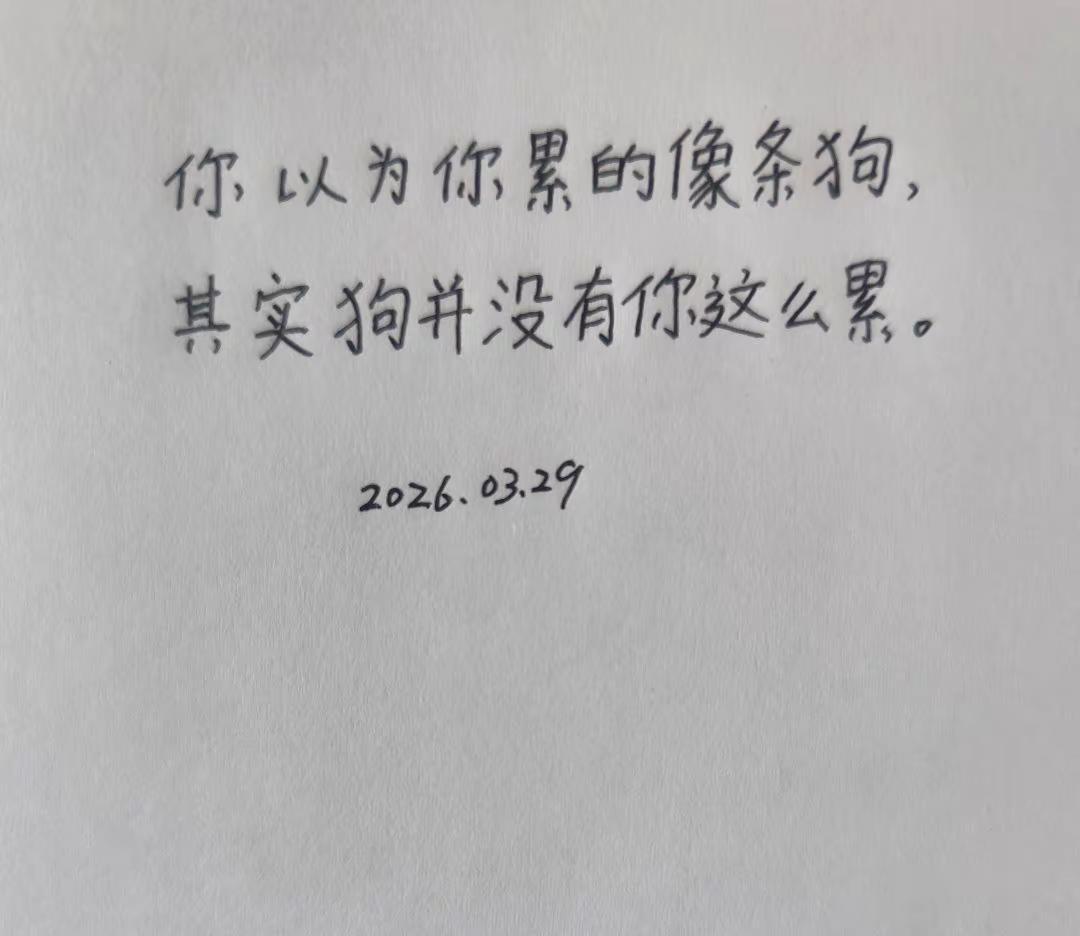 你以为你累的像条狗，
其实狗并没有你这么累。
2026.03.29